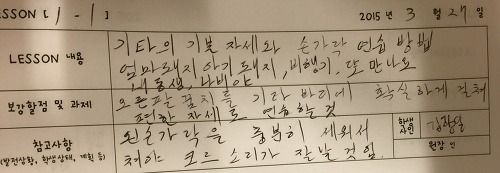 LESSON [ 1 - 1 ] 2015 년 3 월 27 일
LESSON 내용
기타의 기본 자세와 손가락 연습 방법
엄마돼지 아기돼지, 비행기, 또 만나요
내 동생, 나비야
보강할점 및 과제
오른팔 꿈치를 기타 바디에 확실하게 걸쳐
편한 자세로 연습할것
참고사항
(발전상황, 학생상태, 계획 등)
왼손가락은 충분히 세워서
쳐야 코드 소리가 잘날 것임.
학생
사인
원장 인